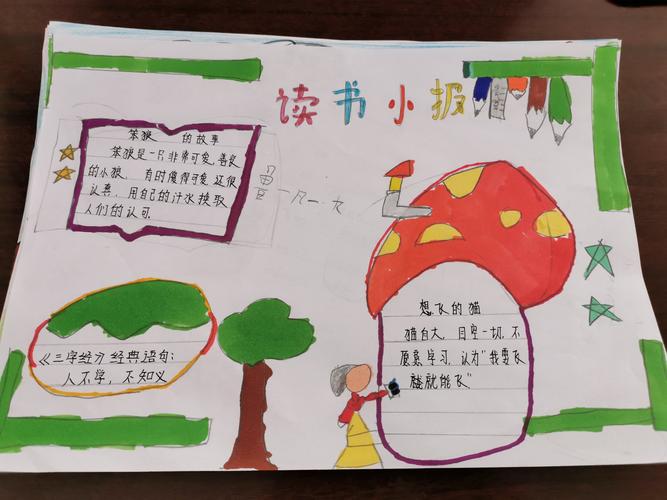 读书小报
笨狼 的故事
笨狼是一只非常可爱,善良
的小狼, 有时傻得可爱,还很
认真, 用自己的汗水换取
人们的认可.
想飞的猫
猫自大, 目空一切, 不
愿意学习, 认为“我要飞
就能飞”
《三字经》经典语句:
人不学, 不知义